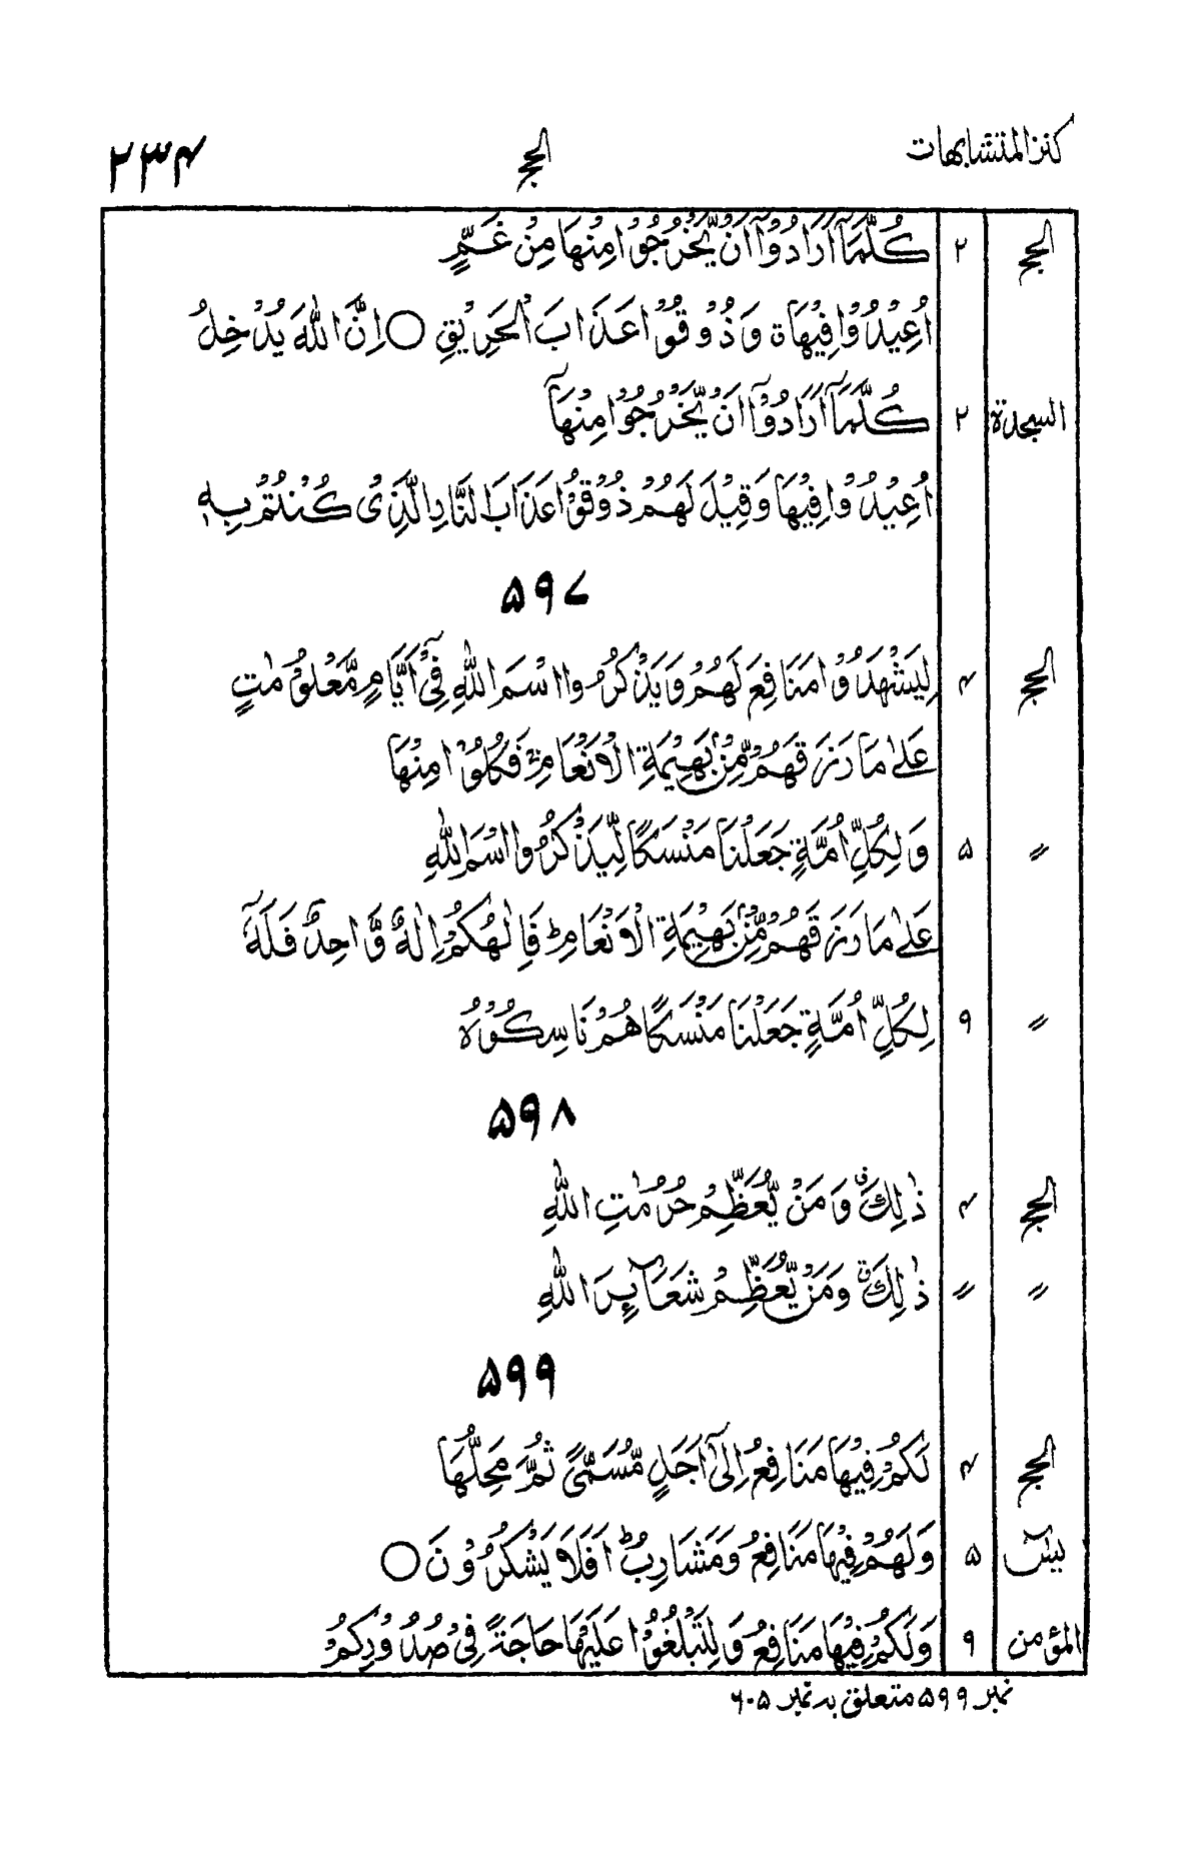 كنز المتشابهات الحج ۲۳۴
الحج ۲ كُلَّمَآ اَرَادُوْٓا اَنْ يَّخْرُجُوْا مِنْهَا مِنْ غَمٍّ
اُعِيْدُوْا فِيْهَا ۃ وَذُوْقُوْا عَذَابَ الْحَرِيْقِ ○ اِنَّ اللّٰهَ يُدْخِلُ
السجدة ۲ كُلَّمَآ اَرَادُوْٓا اَنْ يَّخْرُجُوْا مِنْهَآ
اُعِيْدُوْا فِيْهَا وَقِيْلَ لَهُمْ ذُوْقُوْا عَذَابَ النَّارِ الَّذِىْ كُنْتُمْ بِهٖ
۵۹۷
الحج ۴ لِيَشْهَدُوْا مَنَافِعَ لَهُمْ وَيَذْكُرُوا اسْمَ اللّٰهِ فِىْٓ اَيَّامٍ مَّعْلُوْمٰتٍ
عَلٰى مَا رَزَقَهُمْ مِّنْۢ بَهِيْمَةِ الْاَنْعَامِ ۚ فَكُلُوْا مِنْهَا
〃 ۵ وَلِكُلِّ اُمَّةٍ جَعَلْنَا مَنْسَكًا لِّيَذْكُرُوا اسْمَ اللّٰهِ
عَلٰى مَا رَزَقَهُمْ مِّنْۢ بَهِيْمَةِ الْاَنْعَامِ ؕ فَاِلٰهُكُمْ اِلٰهٌ وَّاحِدٌ فَلَهٗٓ
〃 ۹ لِكُلِّ اُمَّةٍ جَعَلْنَا مَنْسَكًا هُمْ نَاسِكُوْهُ
۵۹۸
الحج ۴ ذٰلِكَ ۗ وَمَنْ يُّعَظِّمْ حُرُمٰتِ اللّٰهِ
〃 〃 ذٰلِكَ ۗ وَمَنْ يُّعَظِّمْ شَعَآئِرَ اللّٰهِ
۵۹۹
الحج ۴ لَكُمْ فِيْهَا مَنَافِعُ اِلٰٓى اَجَلٍ مُّسَمًّى ثُمَّ مَحِلُّهَا
يٰسٓ ۵ وَلَهُمْ فِيْهَا مَنَافِعُ وَمَشَارِبُ ؕ اَفَلَا يَشْكُرُوْنَ ○
المؤمن ۹ وَلَكُمْ فِيْهَا مَنَافِعُ وَلِتَبْلُغُوْا عَلَيْهَا حَاجَةً فِىْ صُدُوْرِكُمْ
نمبر ۵۹۹ متعلق بہ نمبر ۶۰۵